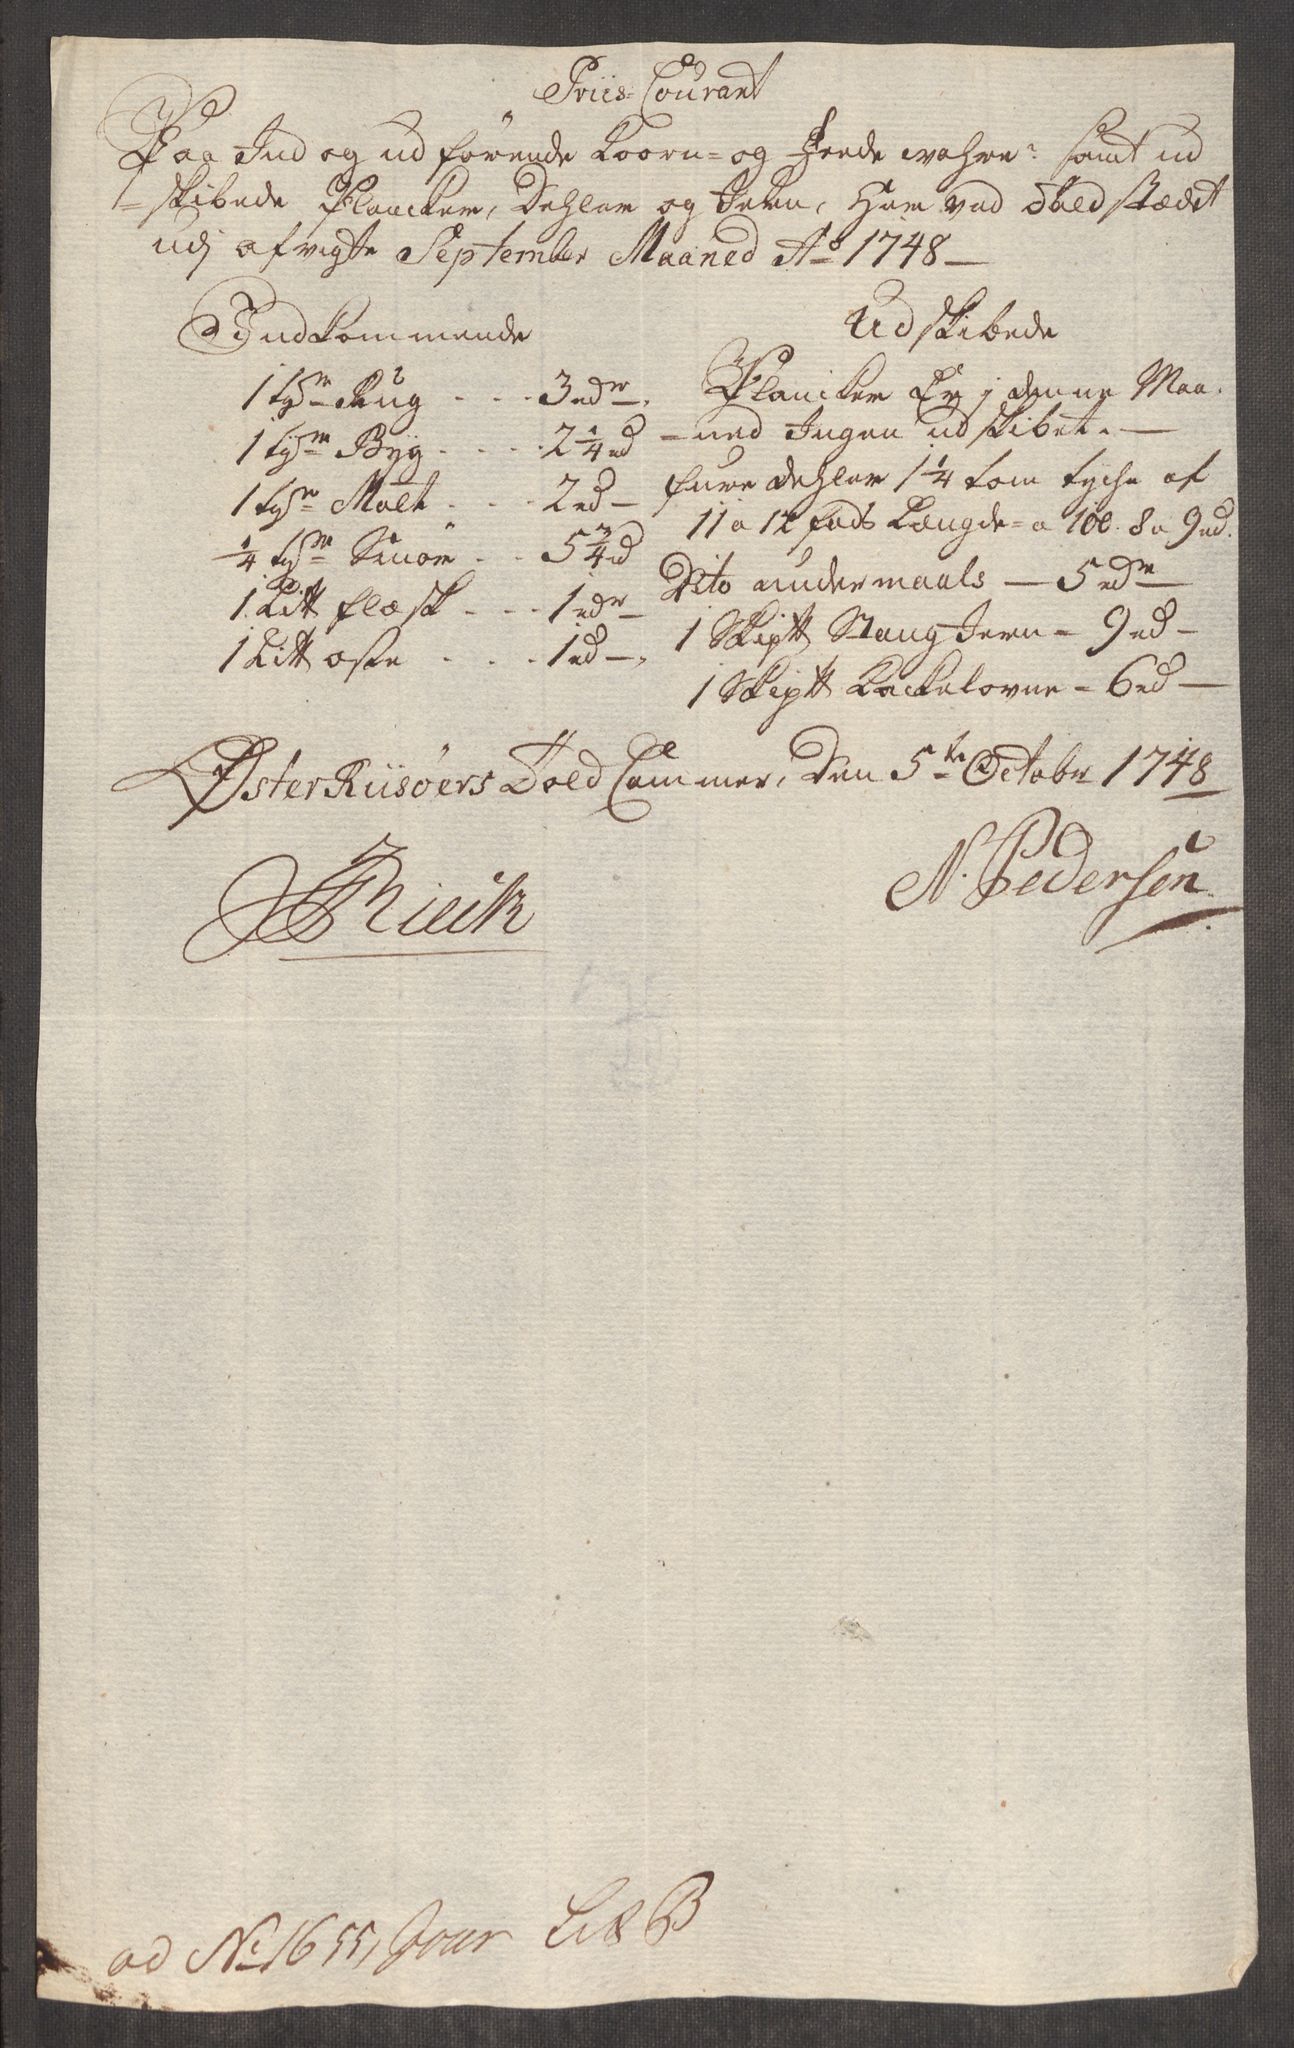 Priis-Courant
Paa Ind og ud førende Koorn- og Feede wahre: samt ud
-skibede Plancker, Dehler og Jern, Her ved Toldstædet
udj afvigte September Maaned Ao 1748
Indkommende
1 tønr Rug - - - 3 rdr.
1 tønr Byg - - - 2 1/4 rd
1 tønr Malt - - - 2 rd
1/4 tønr Smør - - 5 3/4 rd
1 Litt flæsk - - - 1 rdr
1 Litt oste - - - 1 rd
Udskibede
Plancker Er j denne Maa-
-ned Ingen udskibet.
fure dehler 1 1/4 tom tyche af
11 a 12 fods Længde = a 100. 8 a 9 rd.
Dito undermaals - 5 rdr
1 Skiptt Stang Jern - 9 rd
1 Skiptt Kackelovne - 6 rd
ØsterRiisøers Told Cammer, Den 5te Octobr 1748
N. Pedersen
ad No 1655, Jour Litt B